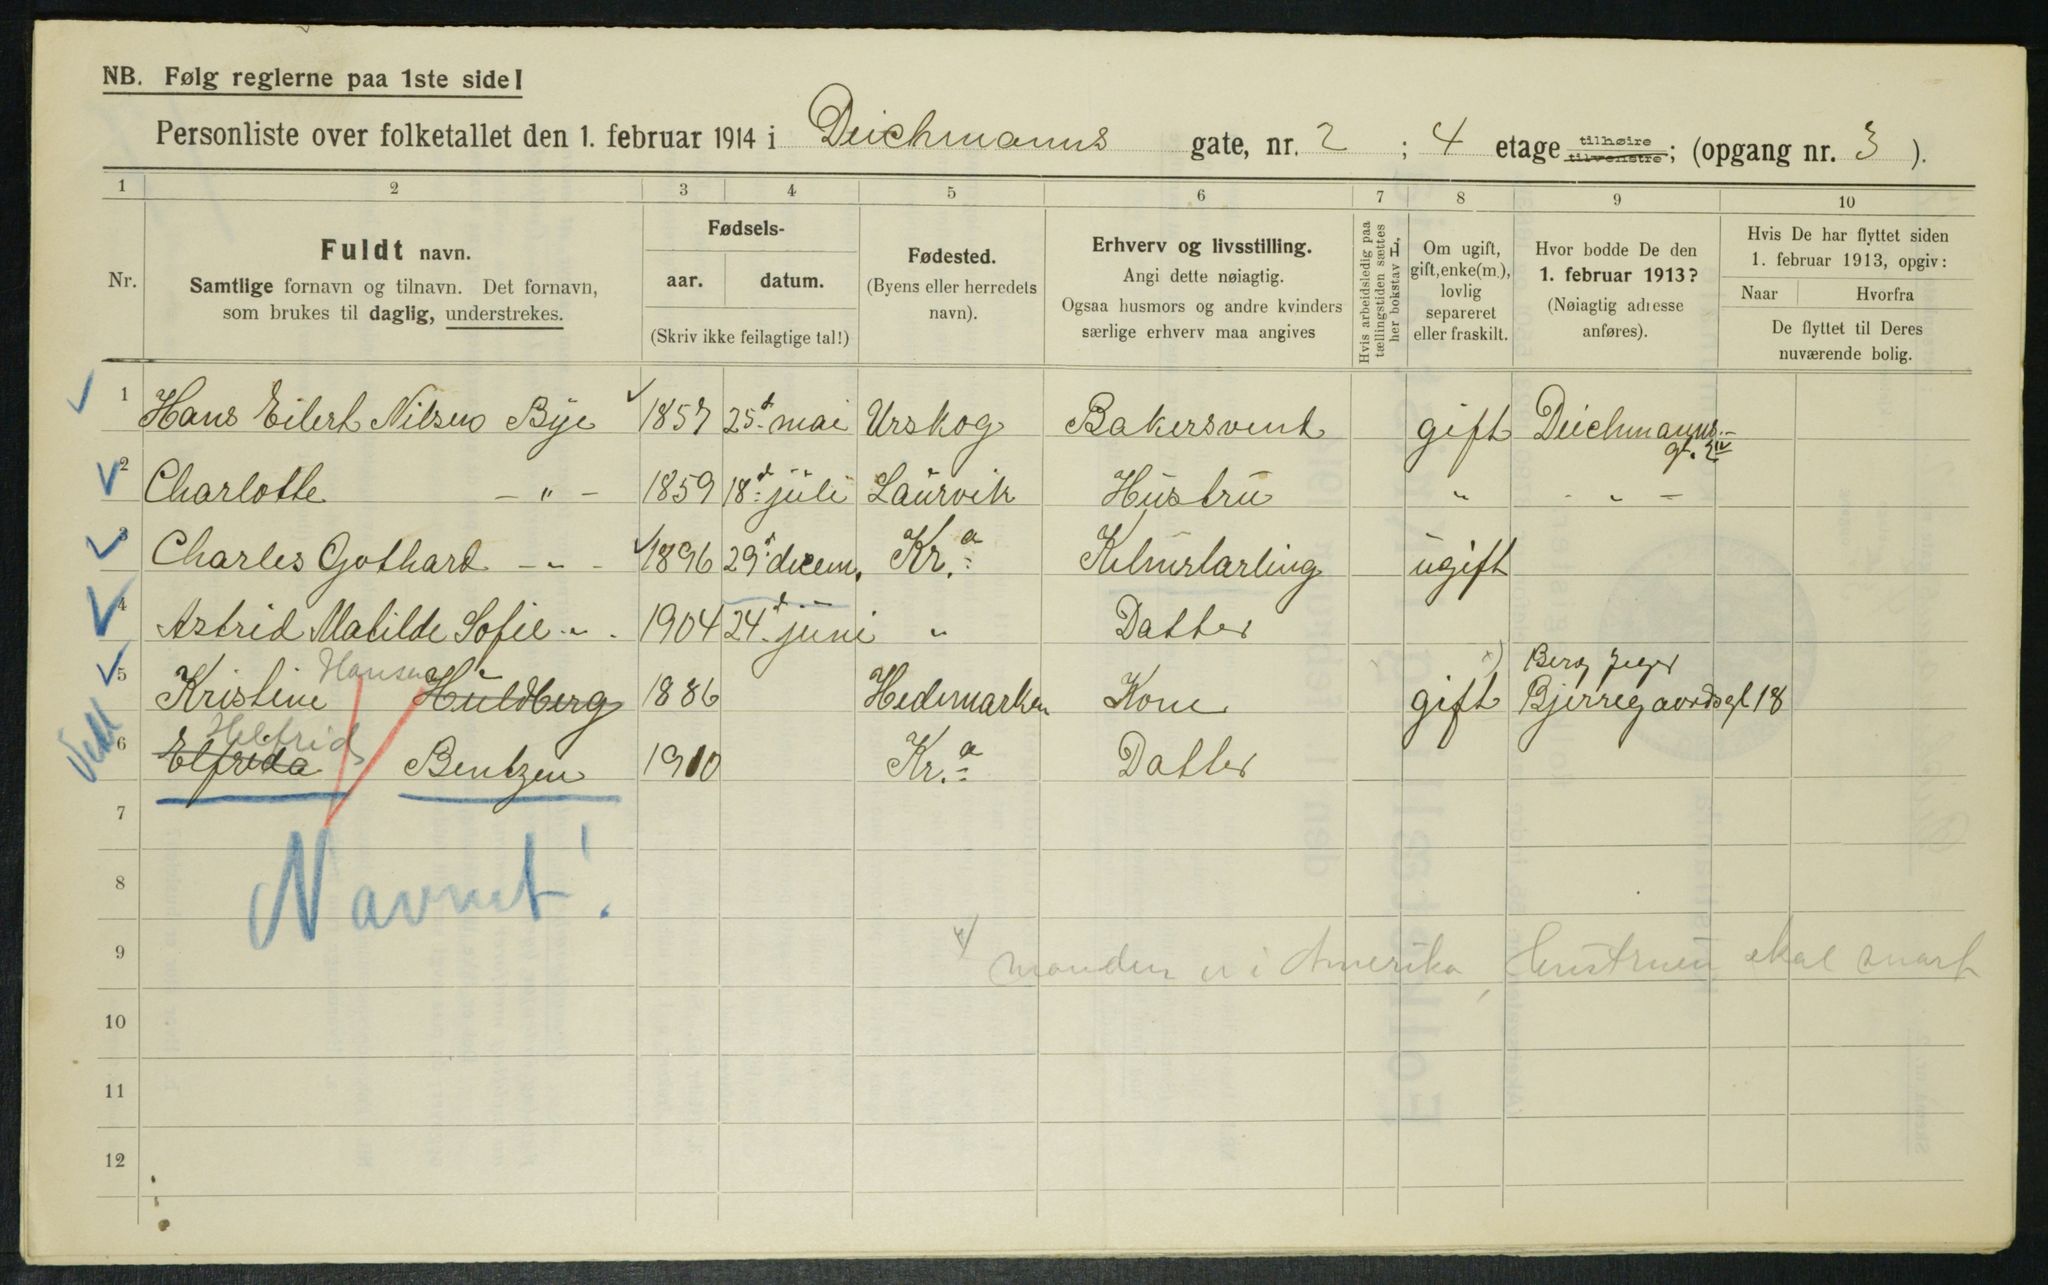 NB. Følg reglerne paa 1ste side!
Personliste over folketallet den 1. februar 1914 i Deichmanns gate, nr. 2 ; 4 etage tilhøire tilvenstre; (opgang nr. 3 ).
1 2 3 4 5 6 7 8 9 10
Nr.
Fuldt navn.
Samtlige fornavn og tilnavn. Det fornavn,
som brukes til daglig, understrekes.
Fødsels-
aar. datum.
(Skriv ikke feilagtige tal!)
Fødested.
(Byens eller herredets
navn).
Erhverv og livsstilling.
Angi dette nøiagtig.
Ogsaa husmors og andre kvinders
særlige erhverv maa angives
Hvis arbeidsledig paa
tællingstiden sættes
her bokstav H.
Om ugift,
gift, enke(m.),
lovlig
separeret
eller fraskilt.
Hvor bodde De den
1. februar 1913?
(Nøiagtig adresse
anføres).
Hvis De har flyttet siden
1. februar 1913, opgiv:
Naar Hvorfra
De flyttet til Deres
nuværende bolig.
1 Hans Eilert Nilsen Bye 1857 25d mai Urskog Bakersvent gift Deichmanns-
gt. 2 IV
2 Charlotte – " – 1859 18d juli Laurvik Hustru " - " -
3 Charles Gothard – " – 1896 29d decem. Kr.a ugift
4 Astrid Matilde Sofie - " - 1904 24d juni " Datter
Hansen
Berg Jeger
5 Kristine Huldberg 1886 Hedemarken Kone gift Bjerregaardsgt 18
Helfrid
6 Elfrida Bentzen 1910 Kr.a Datter
7
Navnet!
8
9 x) manden er i Amerika, hustruen skal snart
10
11
12